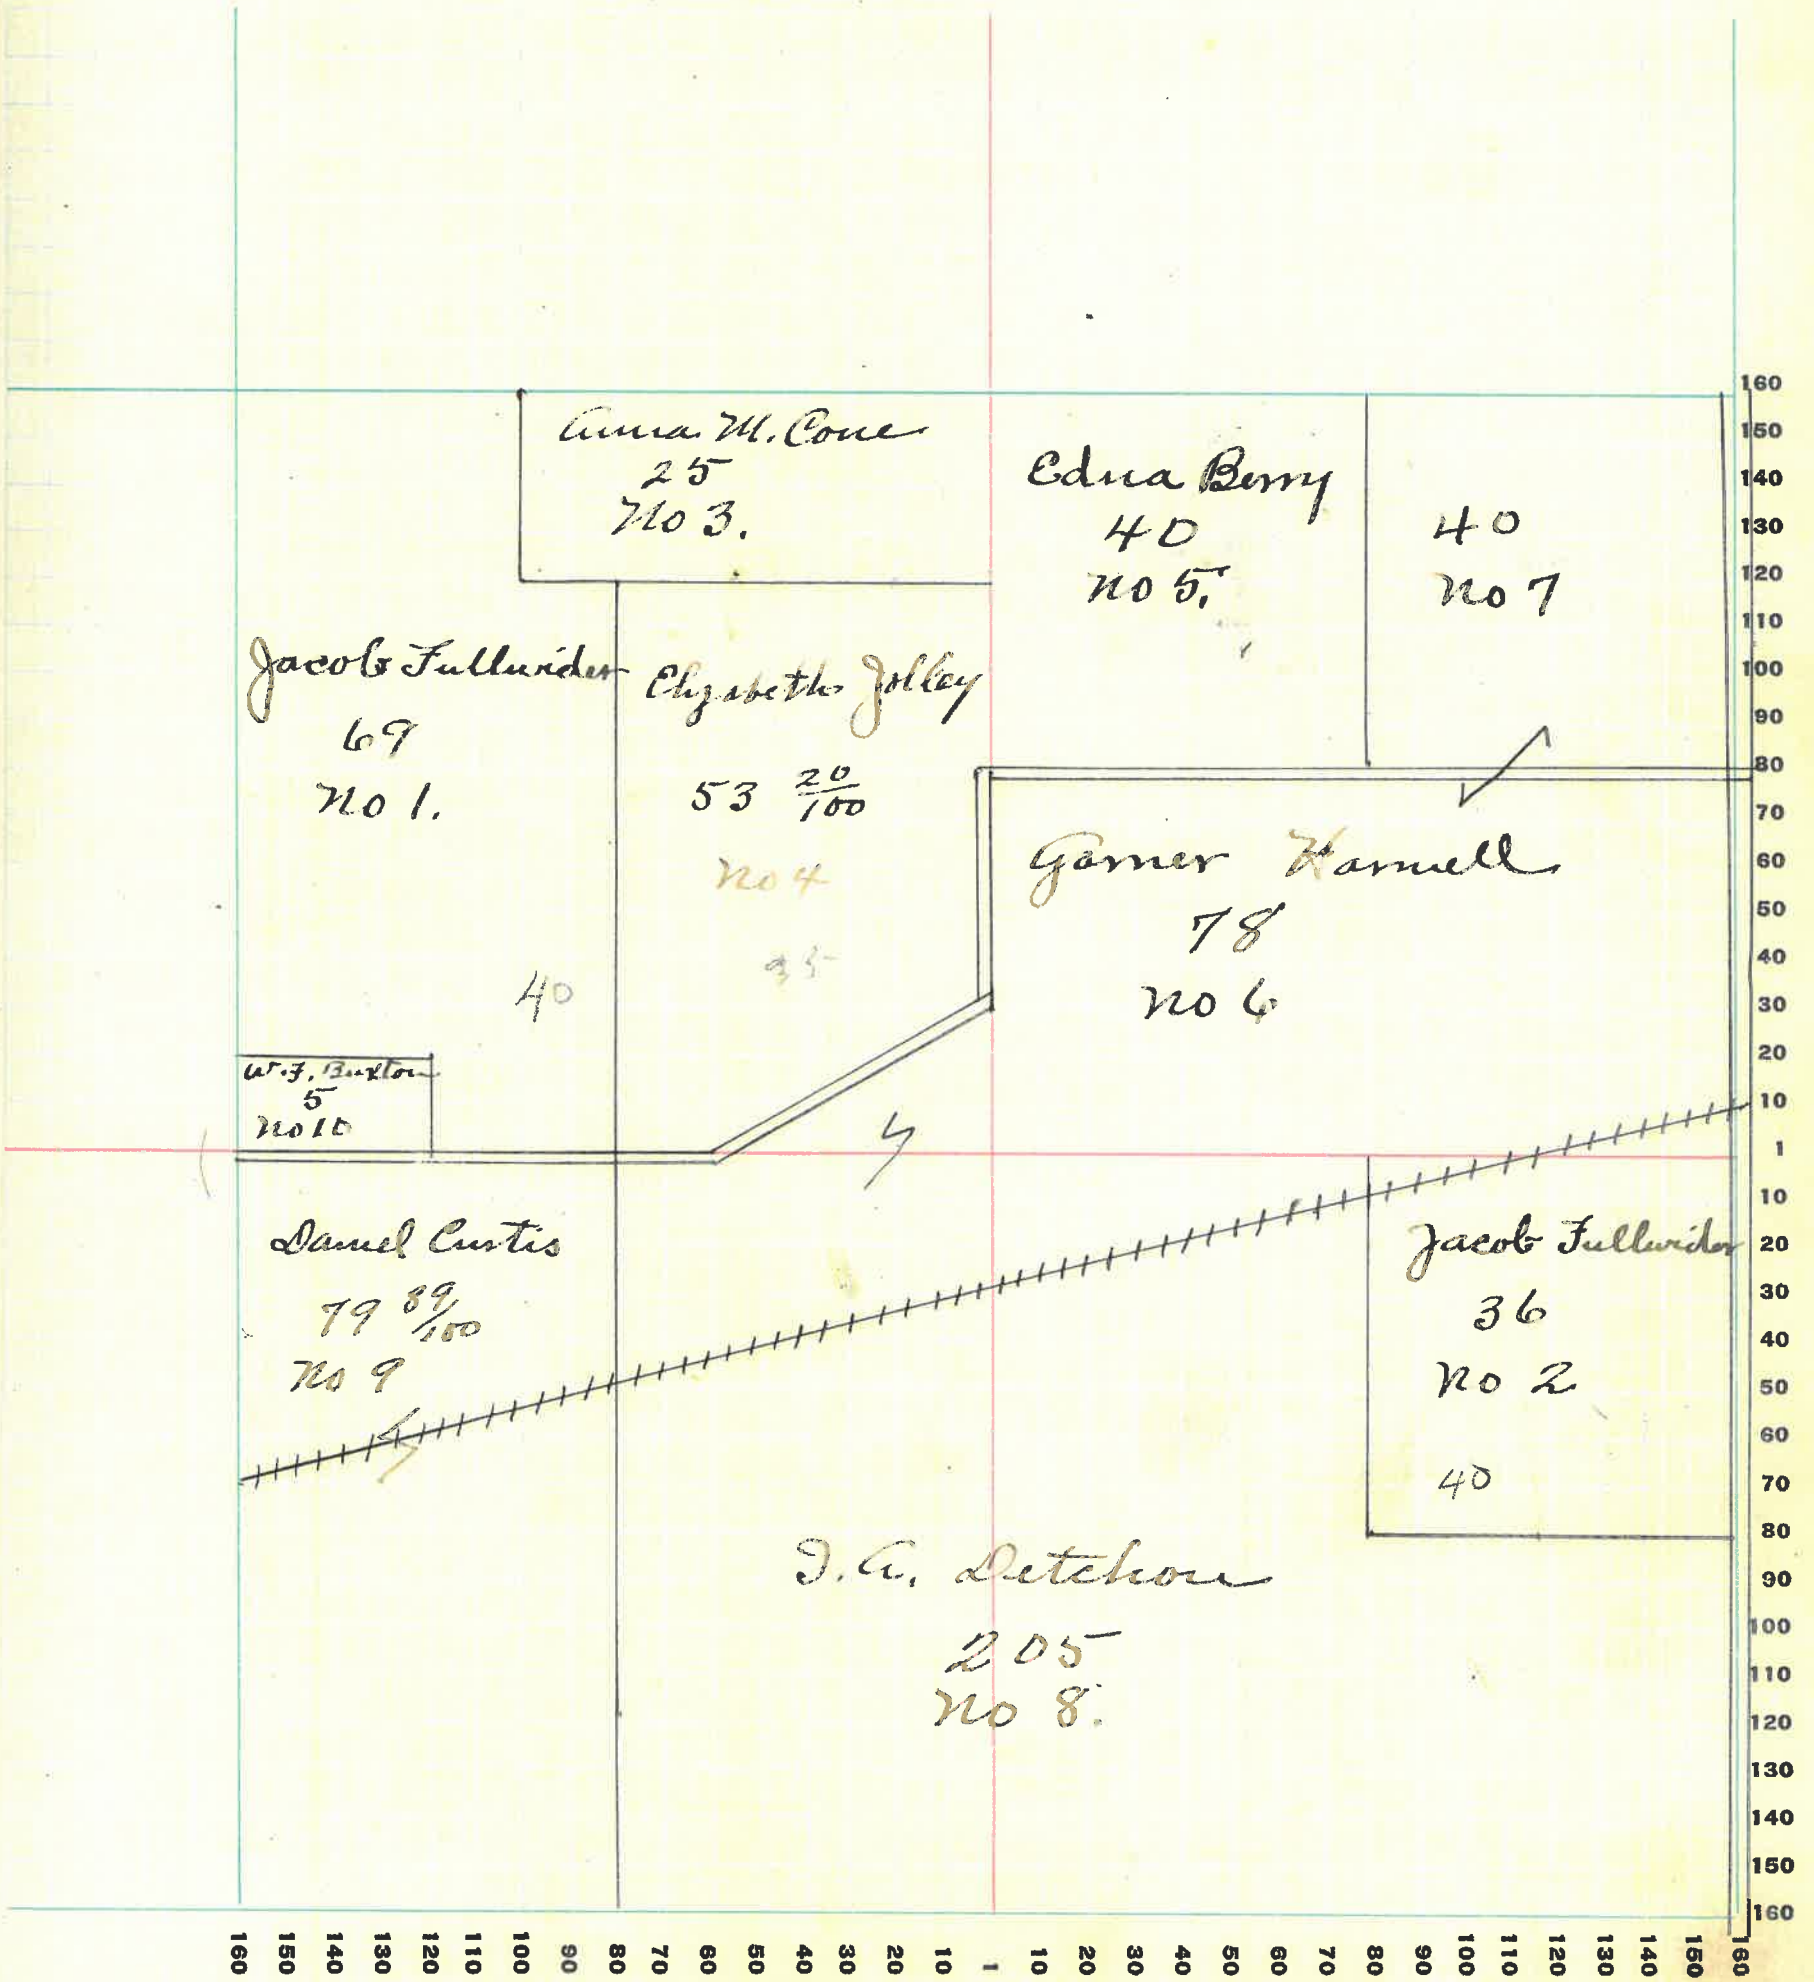 Anna M. Cone
25
No 3.
Edna Berry
40
No 5.
40
No 7
Jacob Fullwider
69
No 1.
40
Elizabeth Jolley
53 20/100
No 4
35
Garner Harwell
78
No 6
W. F. Buxton
5
No 10
Daniel Curtis
79 89/100
No 9
Jacob Fullwider
36
No 2
40
I. A. Detchon
205
No 8.
160
150
140
130
120
110
100
90
80
70
60
50
40
30
20
10
1
10
20
30
40
50
60
70
80
90
100
110
120
130
140
150
160
160 150 140 130 120 110 100 90 80 70 60 50 40 30 20 10 1 10 20 30 40 50 60 70 80 90 100 110 120 130 140 150 160